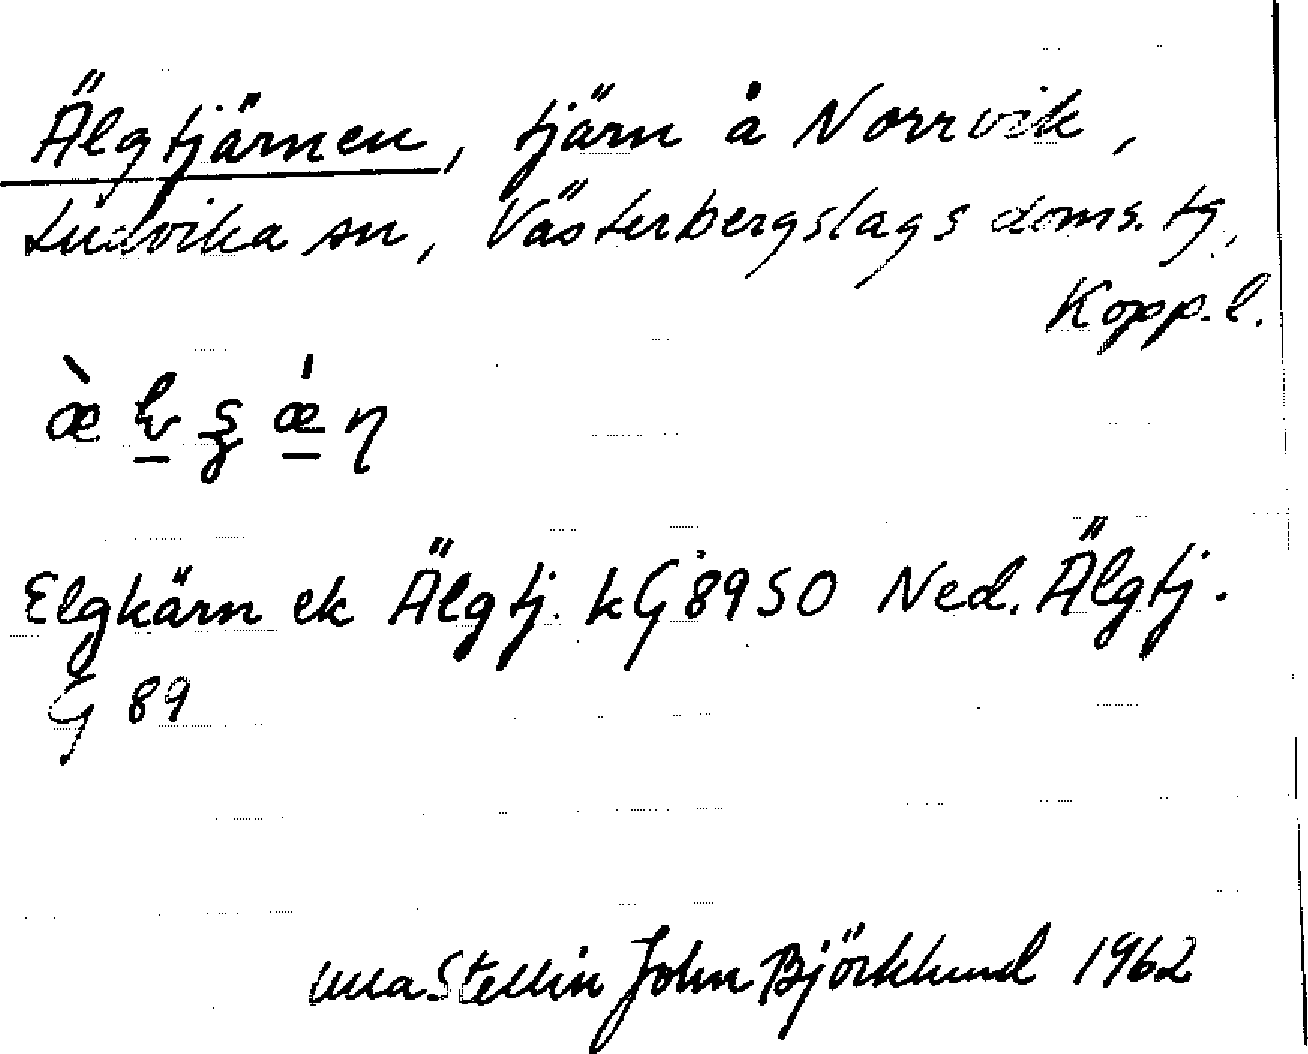 Älgtjärnen, tjärn å Norrvik,
Ludvika sn, Västerbergslags doms. tg,
Kopp. l.
Elgkärn ek Älgtj. kG 8950 Ned. Älgtj.
G 89
Ulla Stellin John Björklund 1962